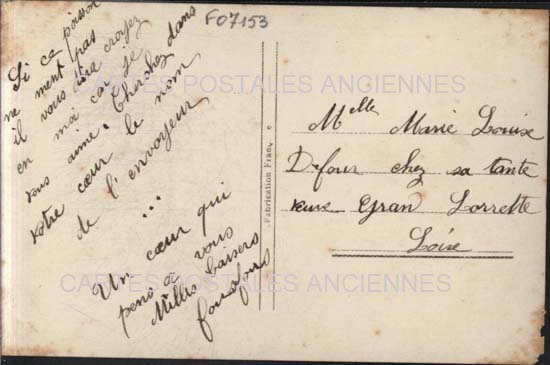 F07153
Si ce poisson
ne ment pas
il vous dira croyez
en moi car je
vous aime. Cherchez dans
votre cœur le nom
de l'envoyeur
...
Un cœur qui
pens à vous
Millis baisers
Fabrication Franç e
Melle Marie Louise
Defour chez sa tante
veuve Gran Lorrette
Loire
CARTES POSTALES ANCIENNES
CARTES POSTALES ANCIENNES